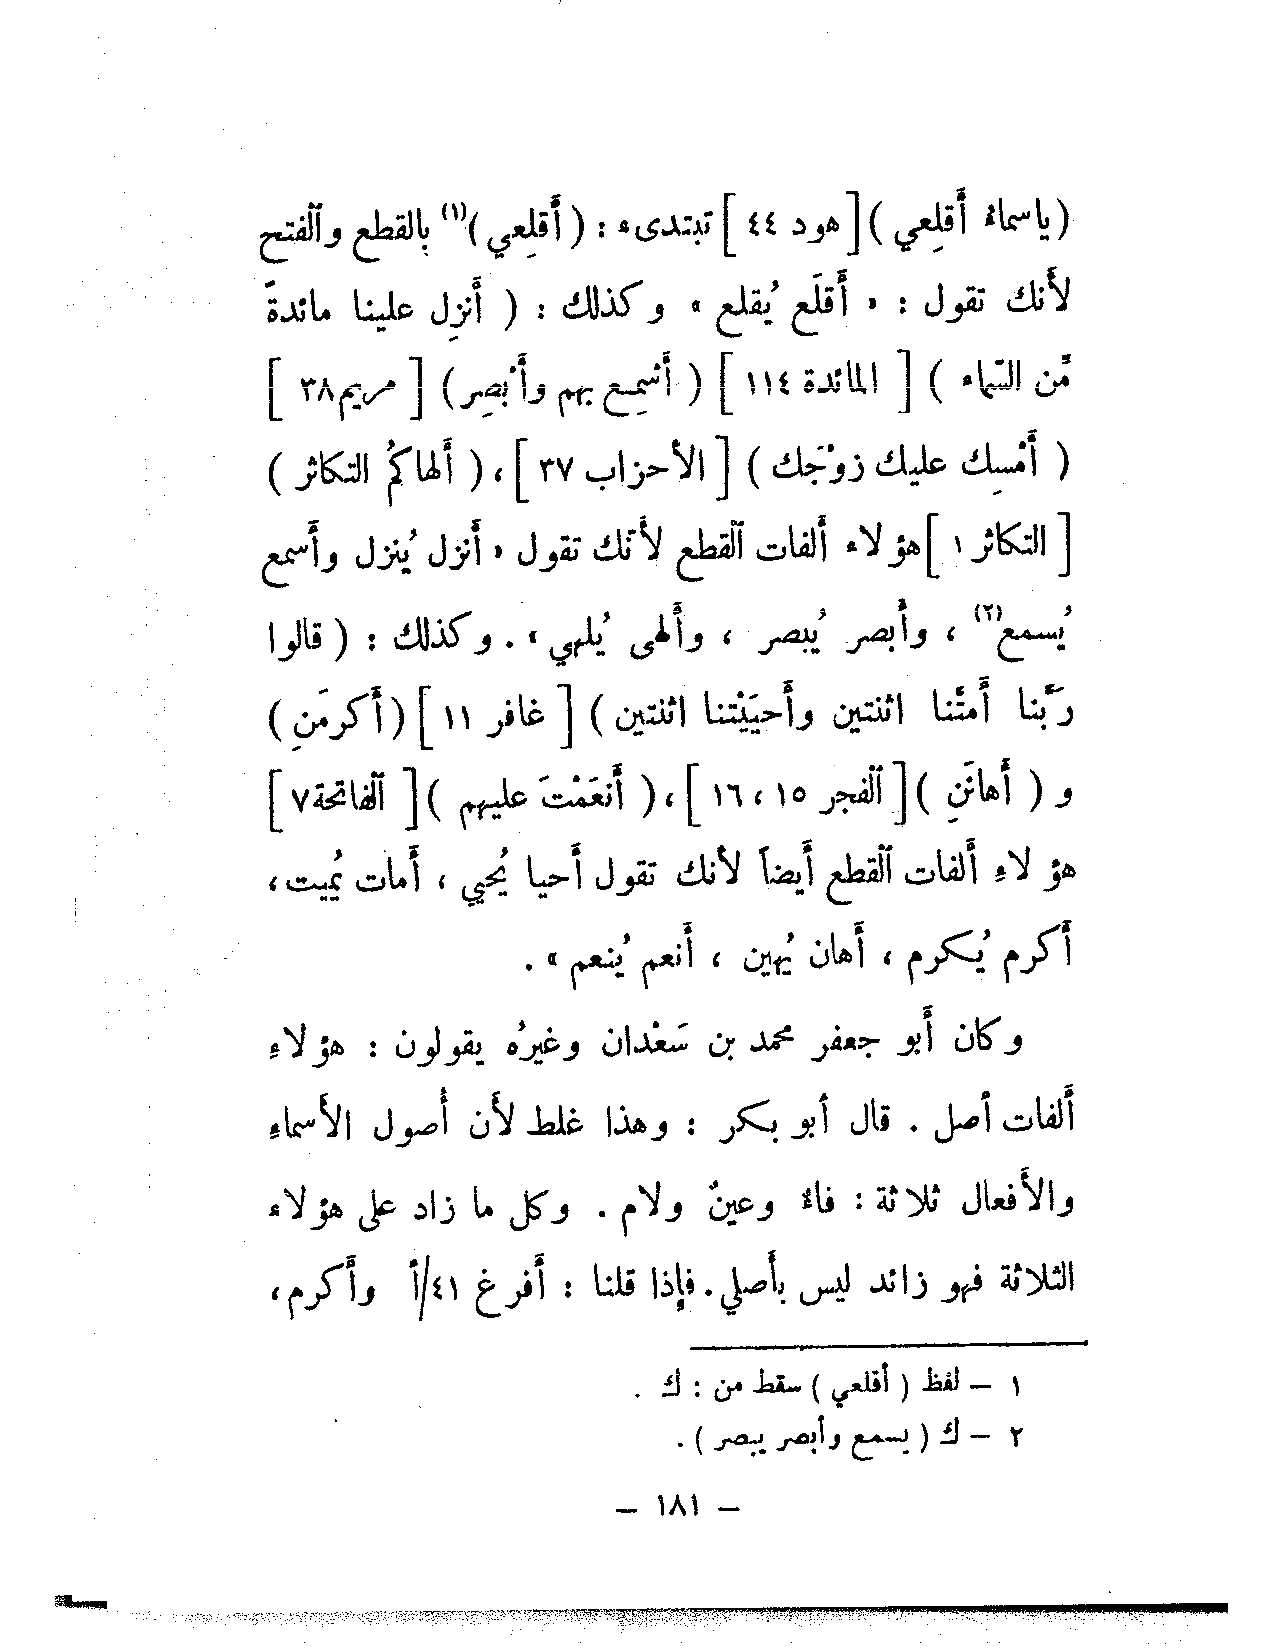 (ياسماءُ أَقلِعي )[ هود ٤٤ ] تبتدىء : ( أَقلِعي )(١) بالقطع وٱلفتح
لأَنك تقول : « أَقلَع يُقلع » وكذلك : ( أَنزِل علينا مائدةً
مِّن السَّماء ) [ المائدة ١١٤ ] ( أَسْمِع بهم وأَبْصِر ) [ مريم٣٨ ]
( أَمْسِك عليك زوْجَك ) [ الأحزاب ٣٧ ] ، ( أَلهاكُم التكاثر )
[ التكاثر ١ ] هؤلاء أَلفات ٱلقطع لأَنّك تقول « أَنزل يُنزل وأَسمع
يُسمع(٢) ، وأَبصر يُبصر ، وأَلهى يُلهي » . وكذلك : ( قالوا
ربَّنا أَمتَّنا اثنتين وأَحيَيْتنا اثنتين ) [ غافر ١١ ] ( أَكرمَنِ )
و ( أَهانَنِ )[ ٱلفجر ١٥ ، ١٦ ] ، ( أَنعَمْتَ عليهم )[ ٱلفاتحة٧ ]
هؤلاءِ أَلفات ٱلقطع أَيضاً لأَنك تقول أَحيا يُحيي ، أَمات يُميت ،
أَكرم يُكرم ، أَهان يُهين ، أَنعم يُنعم » .
وكان أَبو جعفر محمد بن سَعْدان وغيرُه يقولون : هؤلاءِ
أَلفات أَصل . قال أَبو بكر : وهذا غلط لأَن أُصول الأَسماءِ
والأَفعال ثلاثة : فاءٌ وعينٌ ولام . وكل ما زاد على هؤلاء
الثلاثة فهو زائد ليس بأَصلي . فإذا قلنا : أَفرغ ٤١/أ وأَكرم ،
١ – لفظ ( أقلعي ) سقط من : ك .
٢ – ك ( يسمع وأبصر يبصر ) .
– ١٨١ –